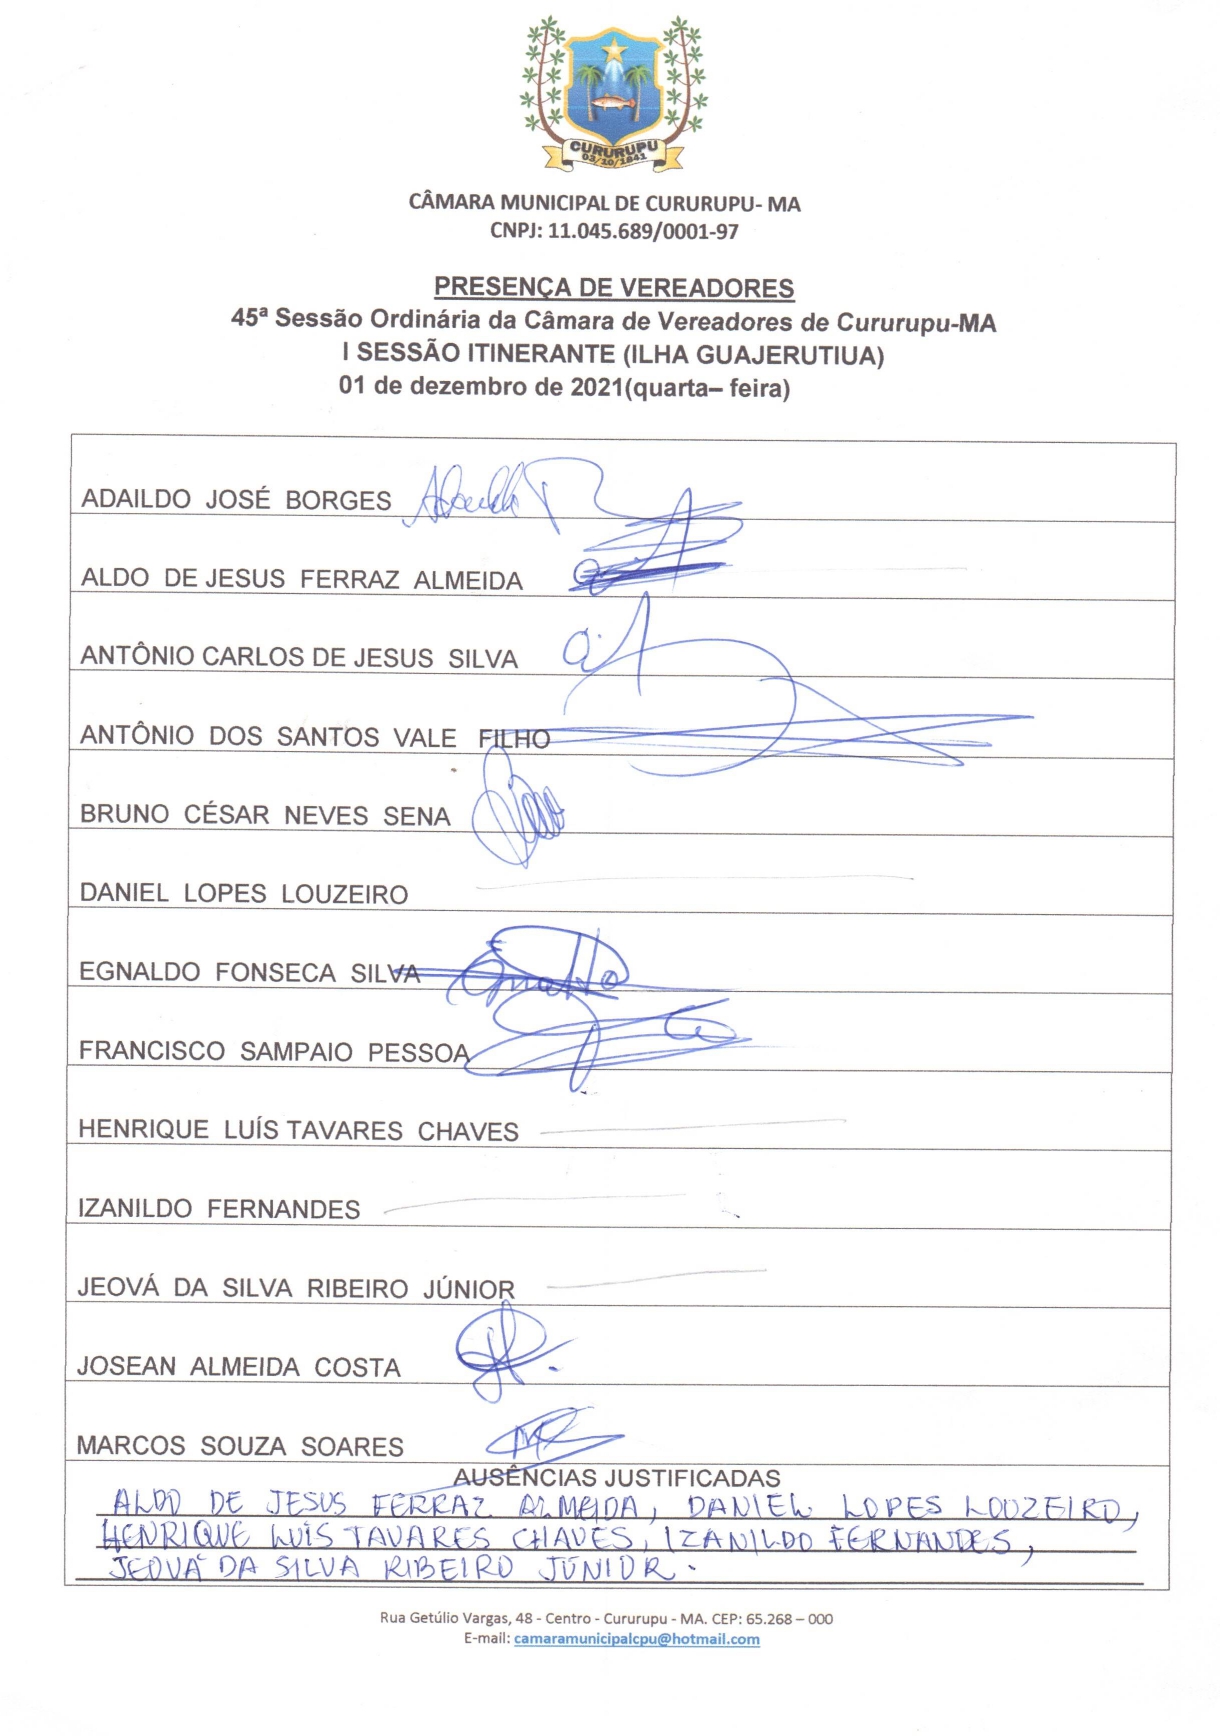 CURURUPU
03/10/1841
CÂMARA MUNICIPAL DE CURURUPU- MA
CNPJ: 11.045.689/0001-97
PRESENÇA DE VEREADORES
45ª Sessão Ordinária da Câmara de Vereadores de Cururupu-MA
I SESSÃO ITINERANTE (ILHA GUAJERUTIUA)
01 de dezembro de 2021(quarta– feira)
ADAILDO JOSÉ BORGES
ALDO DE JESUS FERRAZ ALMEIDA
ANTÔNIO CARLOS DE JESUS SILVA
ANTÔNIO DOS SANTOS VALE FILHO
BRUNO CÉSAR NEVES SENA
DANIEL LOPES LOUZEIRO
EGNALDO FONSECA SILVA
FRANCISCO SAMPAIO PESSOA
HENRIQUE LUÍS TAVARES CHAVES
IZANILDO FERNANDES
JEOVÁ DA SILVA RIBEIRO JÚNIOR
JOSEAN ALMEIDA COSTA
MARCOS SOUZA SOARES
AUSÊNCIAS JUSTIFICADAS
ALDO DE JESUS FERRAZ ALMEIDA, DANIEL LOPES LOUZEIRO,
HENRIQUE LUÍS TAVARES CHAVES, IZANILDO FERNANDES,
JEOVÁ DA SILVA RIBEIRO JÚNIOR.
Rua Getúlio Vargas, 48 - Centro - Cururupu - MA. CEP: 65.268 – 000
E-mail: camaramunicipalcpu@hotmail.com